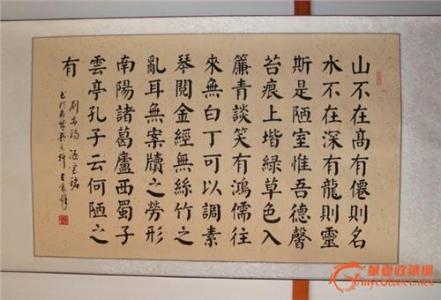 山不在高有僊則名
水不在深有龍則靈
斯是陋室惟吾德馨
苔痕上堦綠草色入
簾青談笑有鴻儒往
來無白丁可以調素
琴閱金經無絲竹之
亂耳無案牘之勞形
南陽諸葛廬西蜀子
雲亭孔子云何陋之
有
劉禹錫 陋室銘
華夏收藏網
mycollect.net